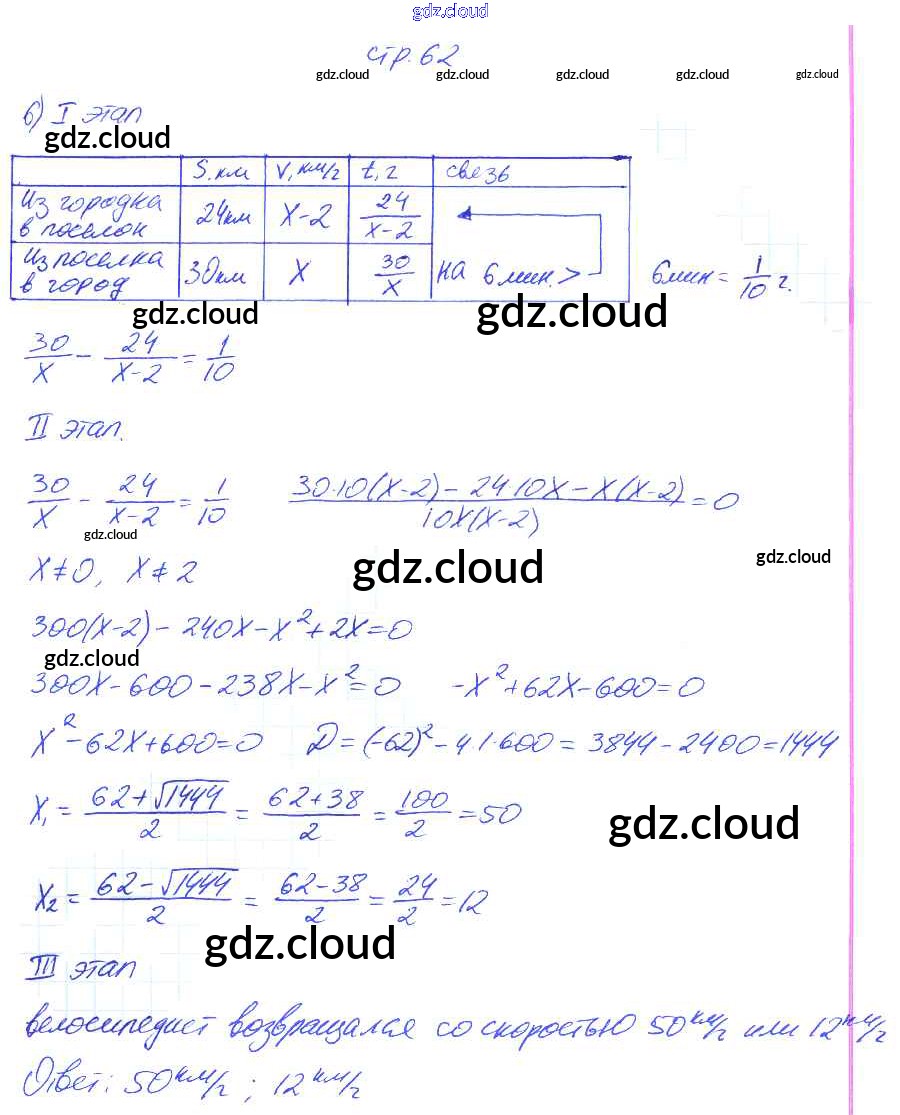 gdz.cloud
стр. 62
gdz.cloud gdz.cloud gdz.cloud gdz.cloud gdz.cloud
б) I этап
gdz.cloud
S. км V, км/ч t, ч связь
Из городка в поселок 24км x-2 24/(x-2)
Из поселка в город 30км x 30/x на 6 мин. > 6мин = 1/10 ч.
gdz.cloud gdz.cloud
30/x - 24/(x-2) = 1/10
II этап.
30/x - 24/(x-2) = 1/10 (30·10(x-2) - 24·10x - x(x-2))/(10x(x-2)) = 0
gdz.cloud
x≠0, x≠2 gdz.cloud gdz.cloud
300(x-2) - 240x - x² + 2x = 0
gdz.cloud
300x - 600 - 238x - x² = 0 -x² + 62x - 600 = 0
x² - 62x + 600 = 0 D = (-62)² - 4·1·600 = 3844 - 2400 = 1444
x₁ = (62+√1444)/2 = (62+38)/2 = 100/2 = 50
gdz.cloud
x₂ = (62-√1444)/2 = (62-38)/2 = 24/2 = 12
gdz.cloud
III этап
велосипедист возвращался со скоростью 50 км/ч или 12 км/ч
Ответ: 50 км/ч ; 12 км/ч